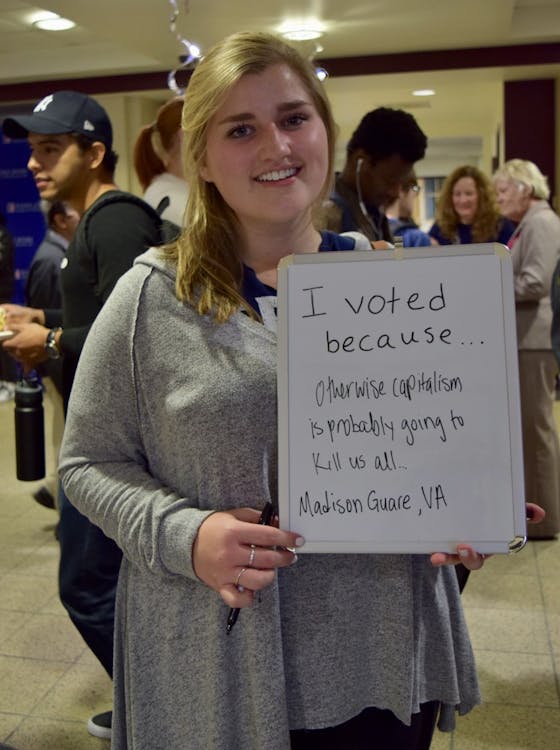 I voted
because...
Otherwise capitalism
is probably going to
kill us all..
Madison Guare, VA